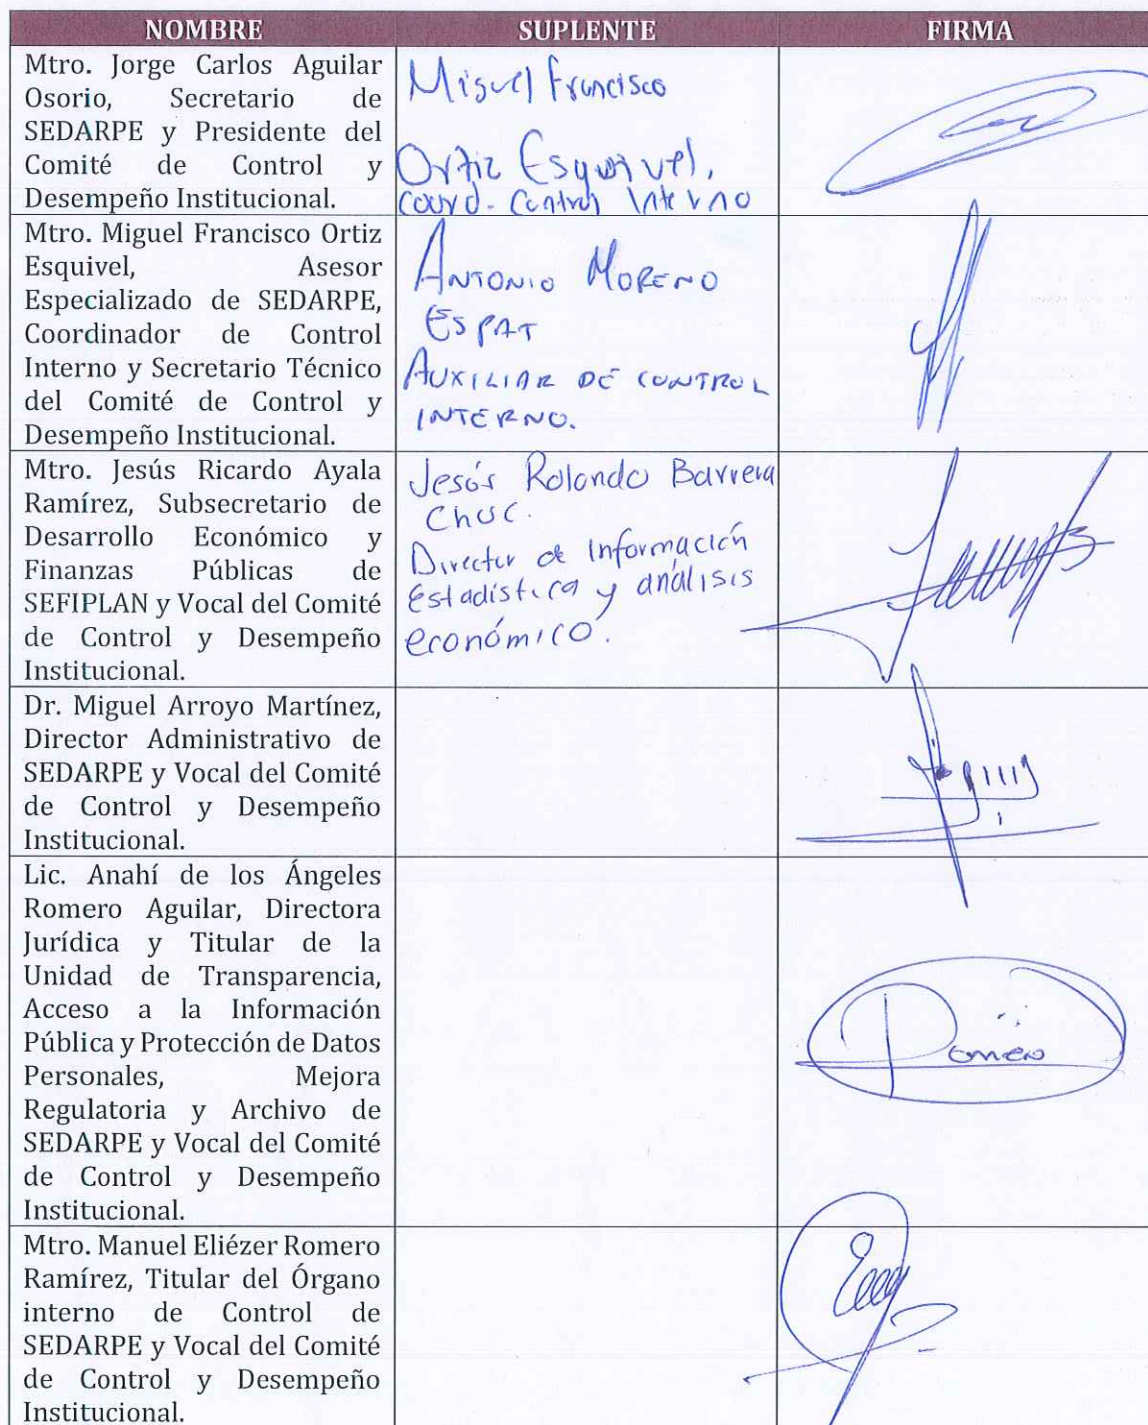 NOMBRE
SUPLENTE
FIRMA
Mtro. Jorge Carlos Aguilar
Osorio, Secretario de
SEDARPE y Presidente del
Comité de Control y
Desempeño Institucional.
Miguel Francisco
Ortiz Esquivel,
coord. Control Interno
Mtro. Miguel Francisco Ortiz
Esquivel, Asesor
Especializado de SEDARPE,
Coordinador de Control
Interno y Secretario Técnico
del Comité de Control y
Desempeño Institucional.
ANTONIO MORENO
ESPAT
AUXILIAR DE CONTROL
INTERNO.
Mtro. Jesús Ricardo Ayala
Ramírez, Subsecretario de
Desarrollo Económico y
Finanzas Públicas de
SEFIPLAN y Vocal del Comité
de Control y Desempeño
Institucional.
Jesús Rolando Barrera
Chuc.
Director de Información
estadística y análisis
económico.
Dr. Miguel Arroyo Martínez,
Director Administrativo de
SEDARPE y Vocal del Comité
de Control y Desempeño
Institucional.
Lic. Anahí de los Ángeles
Romero Aguilar, Directora
Jurídica y Titular de la
Unidad de Transparencia,
Acceso a la Información
Pública y Protección de Datos
Personales, Mejora
Regulatoria y Archivo de
SEDARPE y Vocal del Comité
de Control y Desempeño
Institucional.
Mtro. Manuel Eliézer Romero
Ramírez, Titular del Órgano
interno de Control de
SEDARPE y Vocal del Comité
de Control y Desempeño
Institucional.